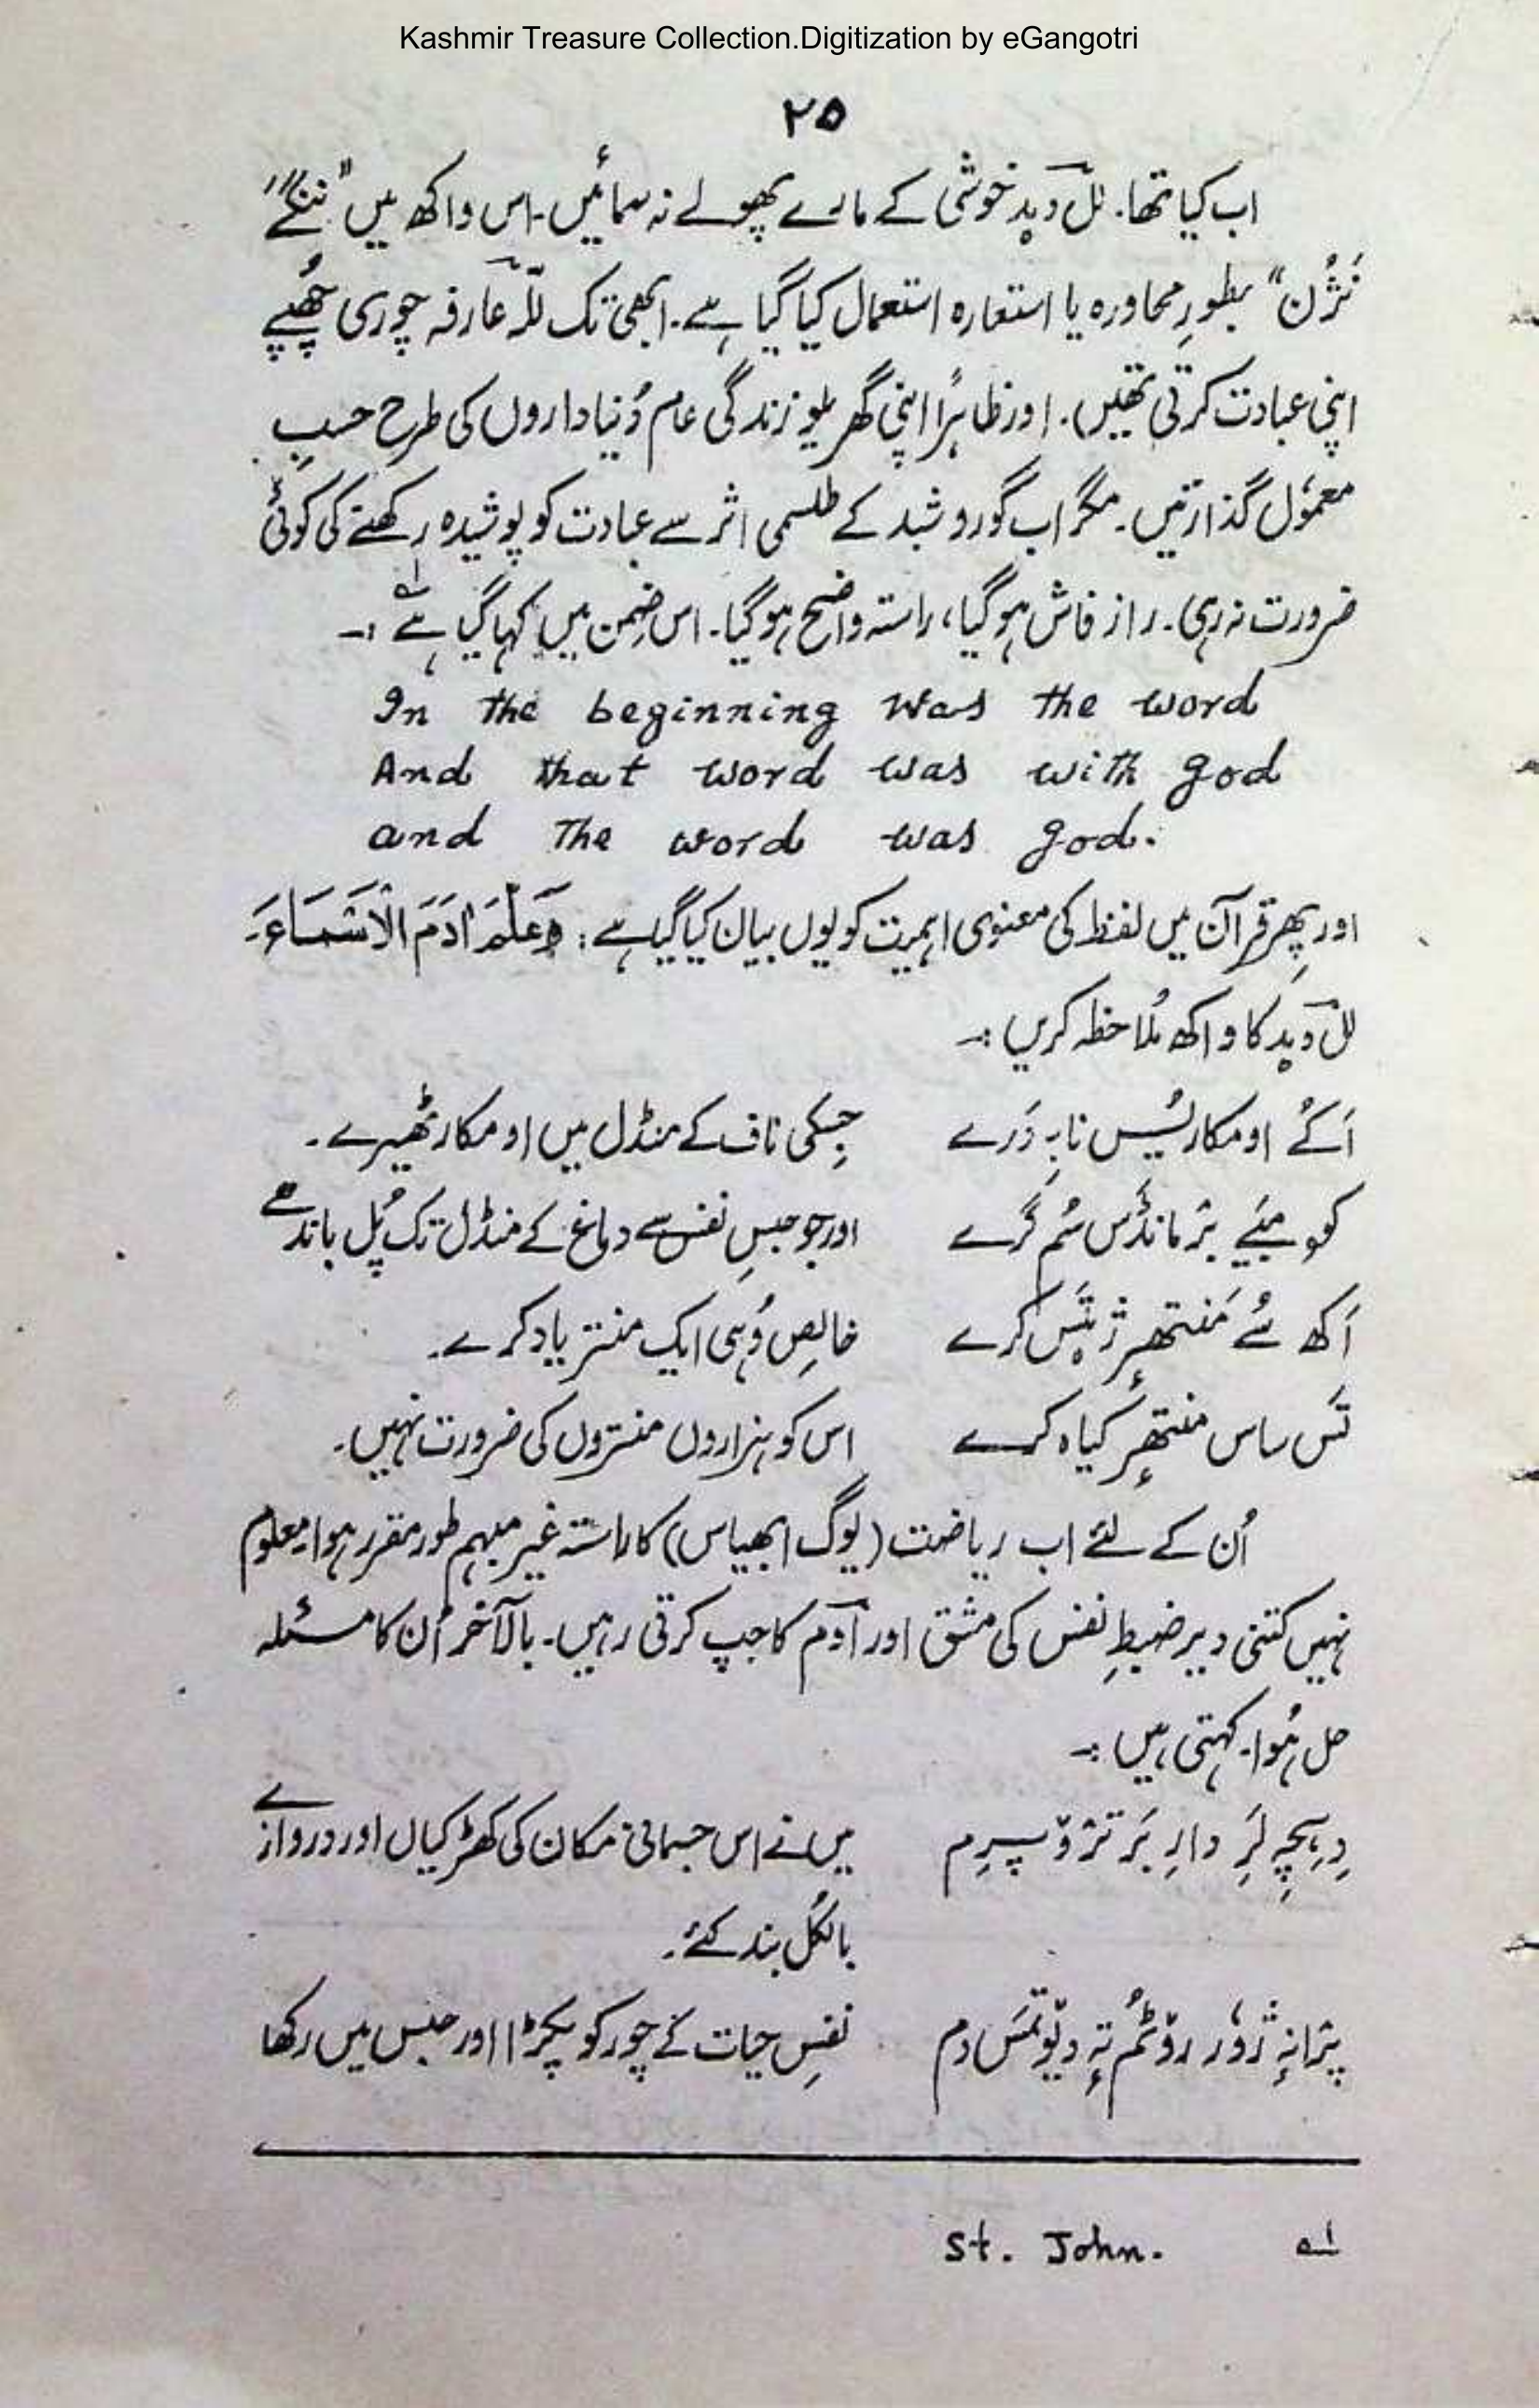 Kashmir Treasure Collection.Digitization by eGangotri
۲۵
اب کیا تھا۔ للؔ دید خوشی کے مارے پھولے نہ سمائیں۔ اس واکھ میں "ننگے
نَژُن" بطورِ محاورہ یا استعارہ استعمال کیا گیا ہے۔ ابھی تک للّہ عارفہ چوری چھُپے
اپنی عبادت کرتی تھیں۔ اور ظاہراً اپنی گھریلو زندگی عام دُنیاداروں کی طرح حسبِ
معمُول گذارتیں۔ مگر اب گورو شبد کے طلسمی اثر سے عبادت کو پوشیدہ رکھنے کی کوئی
ضرورت نہ رہی۔ راز فاش ہو گیا، راستہ واضح ہو گیا۔ اس ضمن میں کہا گیا ہے ؎۱ :۔
In the beginning was the word
And that word was with god
and The word was god.
اور پھر قرآن میں لفظ کی معنوی اہمیت کو یوں بیان کیا گیا ہے : وَعَلَّمَ اٰدَمَ الْاَسْمَاءَ۔
للؔ دید کا واکھ مُلاحظہ کریں :۔
اَکُے اومکار یُس نابہِ دَرے
جِسکی ناف کے منڈل میں اومکار ٹھیرے۔
کومبَے برٛمانڈَس سُم گَرے
اور جو حبسِ نفس سے دماغ کے منڈل تک پُل باندھے
اَکھ سُے مَنتھٕر ژیتَس کرے
خالِص وُہی ایک منتر یاد کرے۔
تَس ساس منتھٕر کیاہ کرے
اس کو ہزاروں منتروں کی ضرورت نہیں۔
اُن کے لئے اب ریاضت (یوگ ابھیاس) کا راستہ غیر مبہم طور مقرر ہوا۔ معلوم
نہیں کتنی دیر ضبطِ نفس کی مشق اور آوم کا جپ کرتی رہیں۔ بالآخر اُن کا مسئلہ
حل ہُوا۔ کہتی ہیں :۔
دِہچہِ لَرِ دارِ بَر ترٛوٚپرِم
میں نے اس جسمانی مکان کی کھڑکیاں اور دروازے
بالکُل بند کئے۔
پرٛانہٕ ژوٗر روٚٹُم تہٕ دیوٚتمَس دم
نفسِ حیات کے چور کو پکڑا اور حبس میں رکھا
؎۱ St. John.